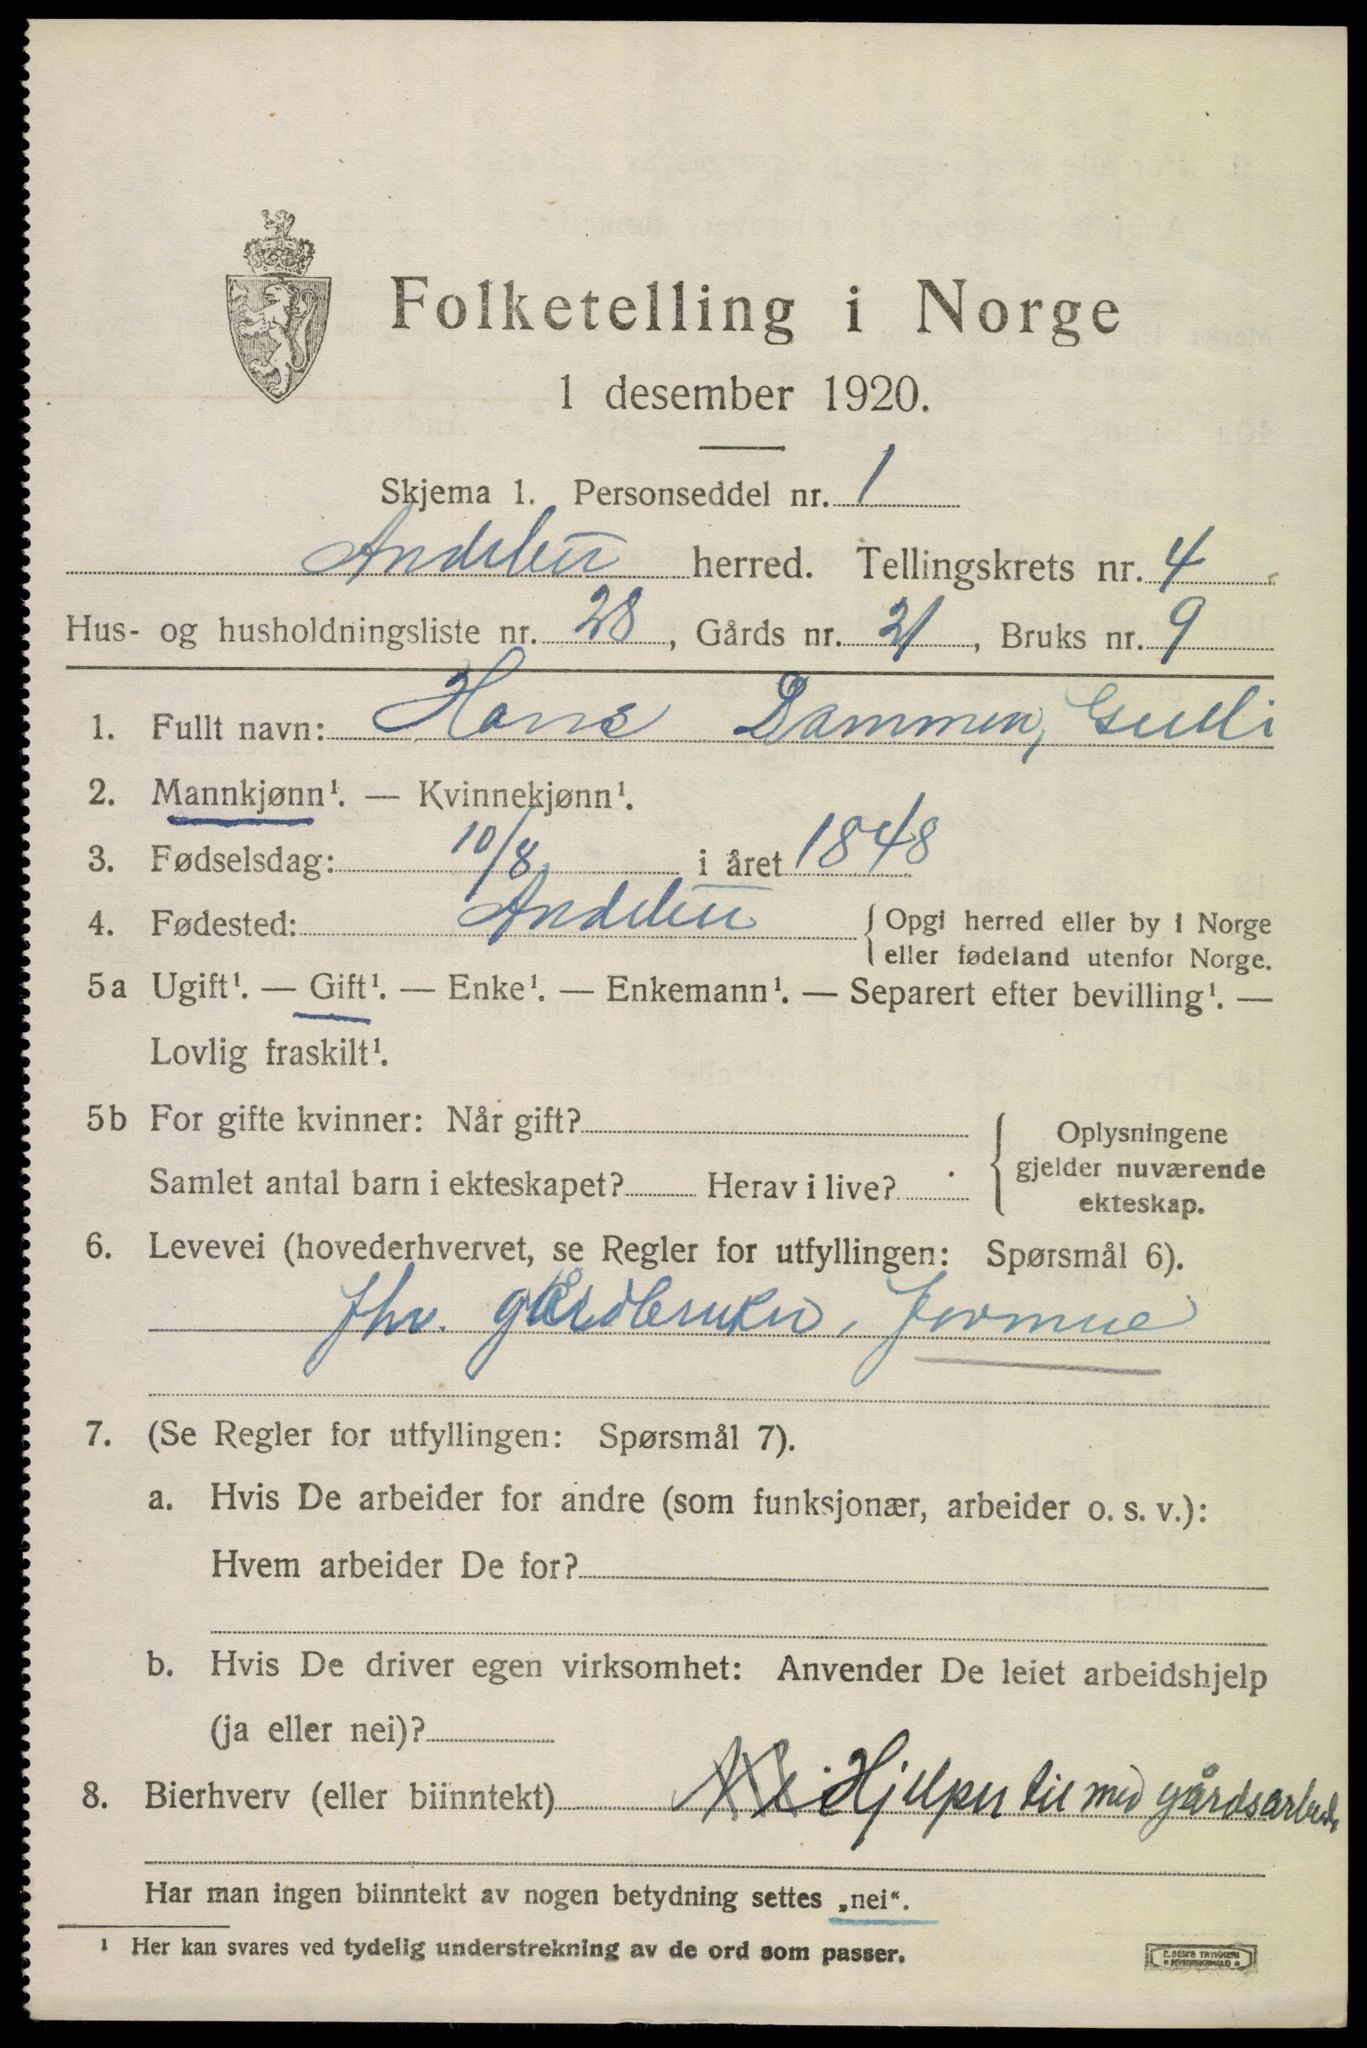 Folketelling i Norge
1 desember 1920.
Skjema 1. Personseddel nr. 1
Andebu herred. Tellingskrets nr. 4
Hus- og husholdningsliste nr. 28, Gårds nr. 21, Bruks nr. 9
1. Fullt navn: Hans Dammen, Gulli
2. Mannkjønn¹. — Kvinnekjønn¹.
3. Fødselsdag: 10/8 i året 1848
4. Fødested: Andebu { Opgi herred eller by i Norge
eller fødeland utenfor Norge.
5a Ugift¹. — Gift¹. — Enke¹. — Enkemann¹. — Separert efter bevilling¹. —
Lovlig fraskilt¹.
5b For gifte kvinner: Når gift?
Samlet antal barn i ekteskapet? Herav i live?
Oplysningene
gjelder nuværende
ekteskap.
6. Levevei (hovederhvervet, se Regler for utfyllingen: Spørsmål 6).
fhv. gårdbruker, formue
7. (Se Regler for utfyllingen: Spørsmål 7).
a. Hvis De arbeider for andre (som funksjonær, arbeider o. s. v.):
Hvem arbeider De for?
b. Hvis De driver egen virksomhet: Anvender De leiet arbeidshjelp
(ja eller nei)?
8. Bierhverv (eller biinntekt) Nei Hjelper til med gårdsarbeide
Har man ingen biinntekt av nogen betydning settes „nei“.
¹ Her kan svares ved tydelig understrekning av de ord som passer.